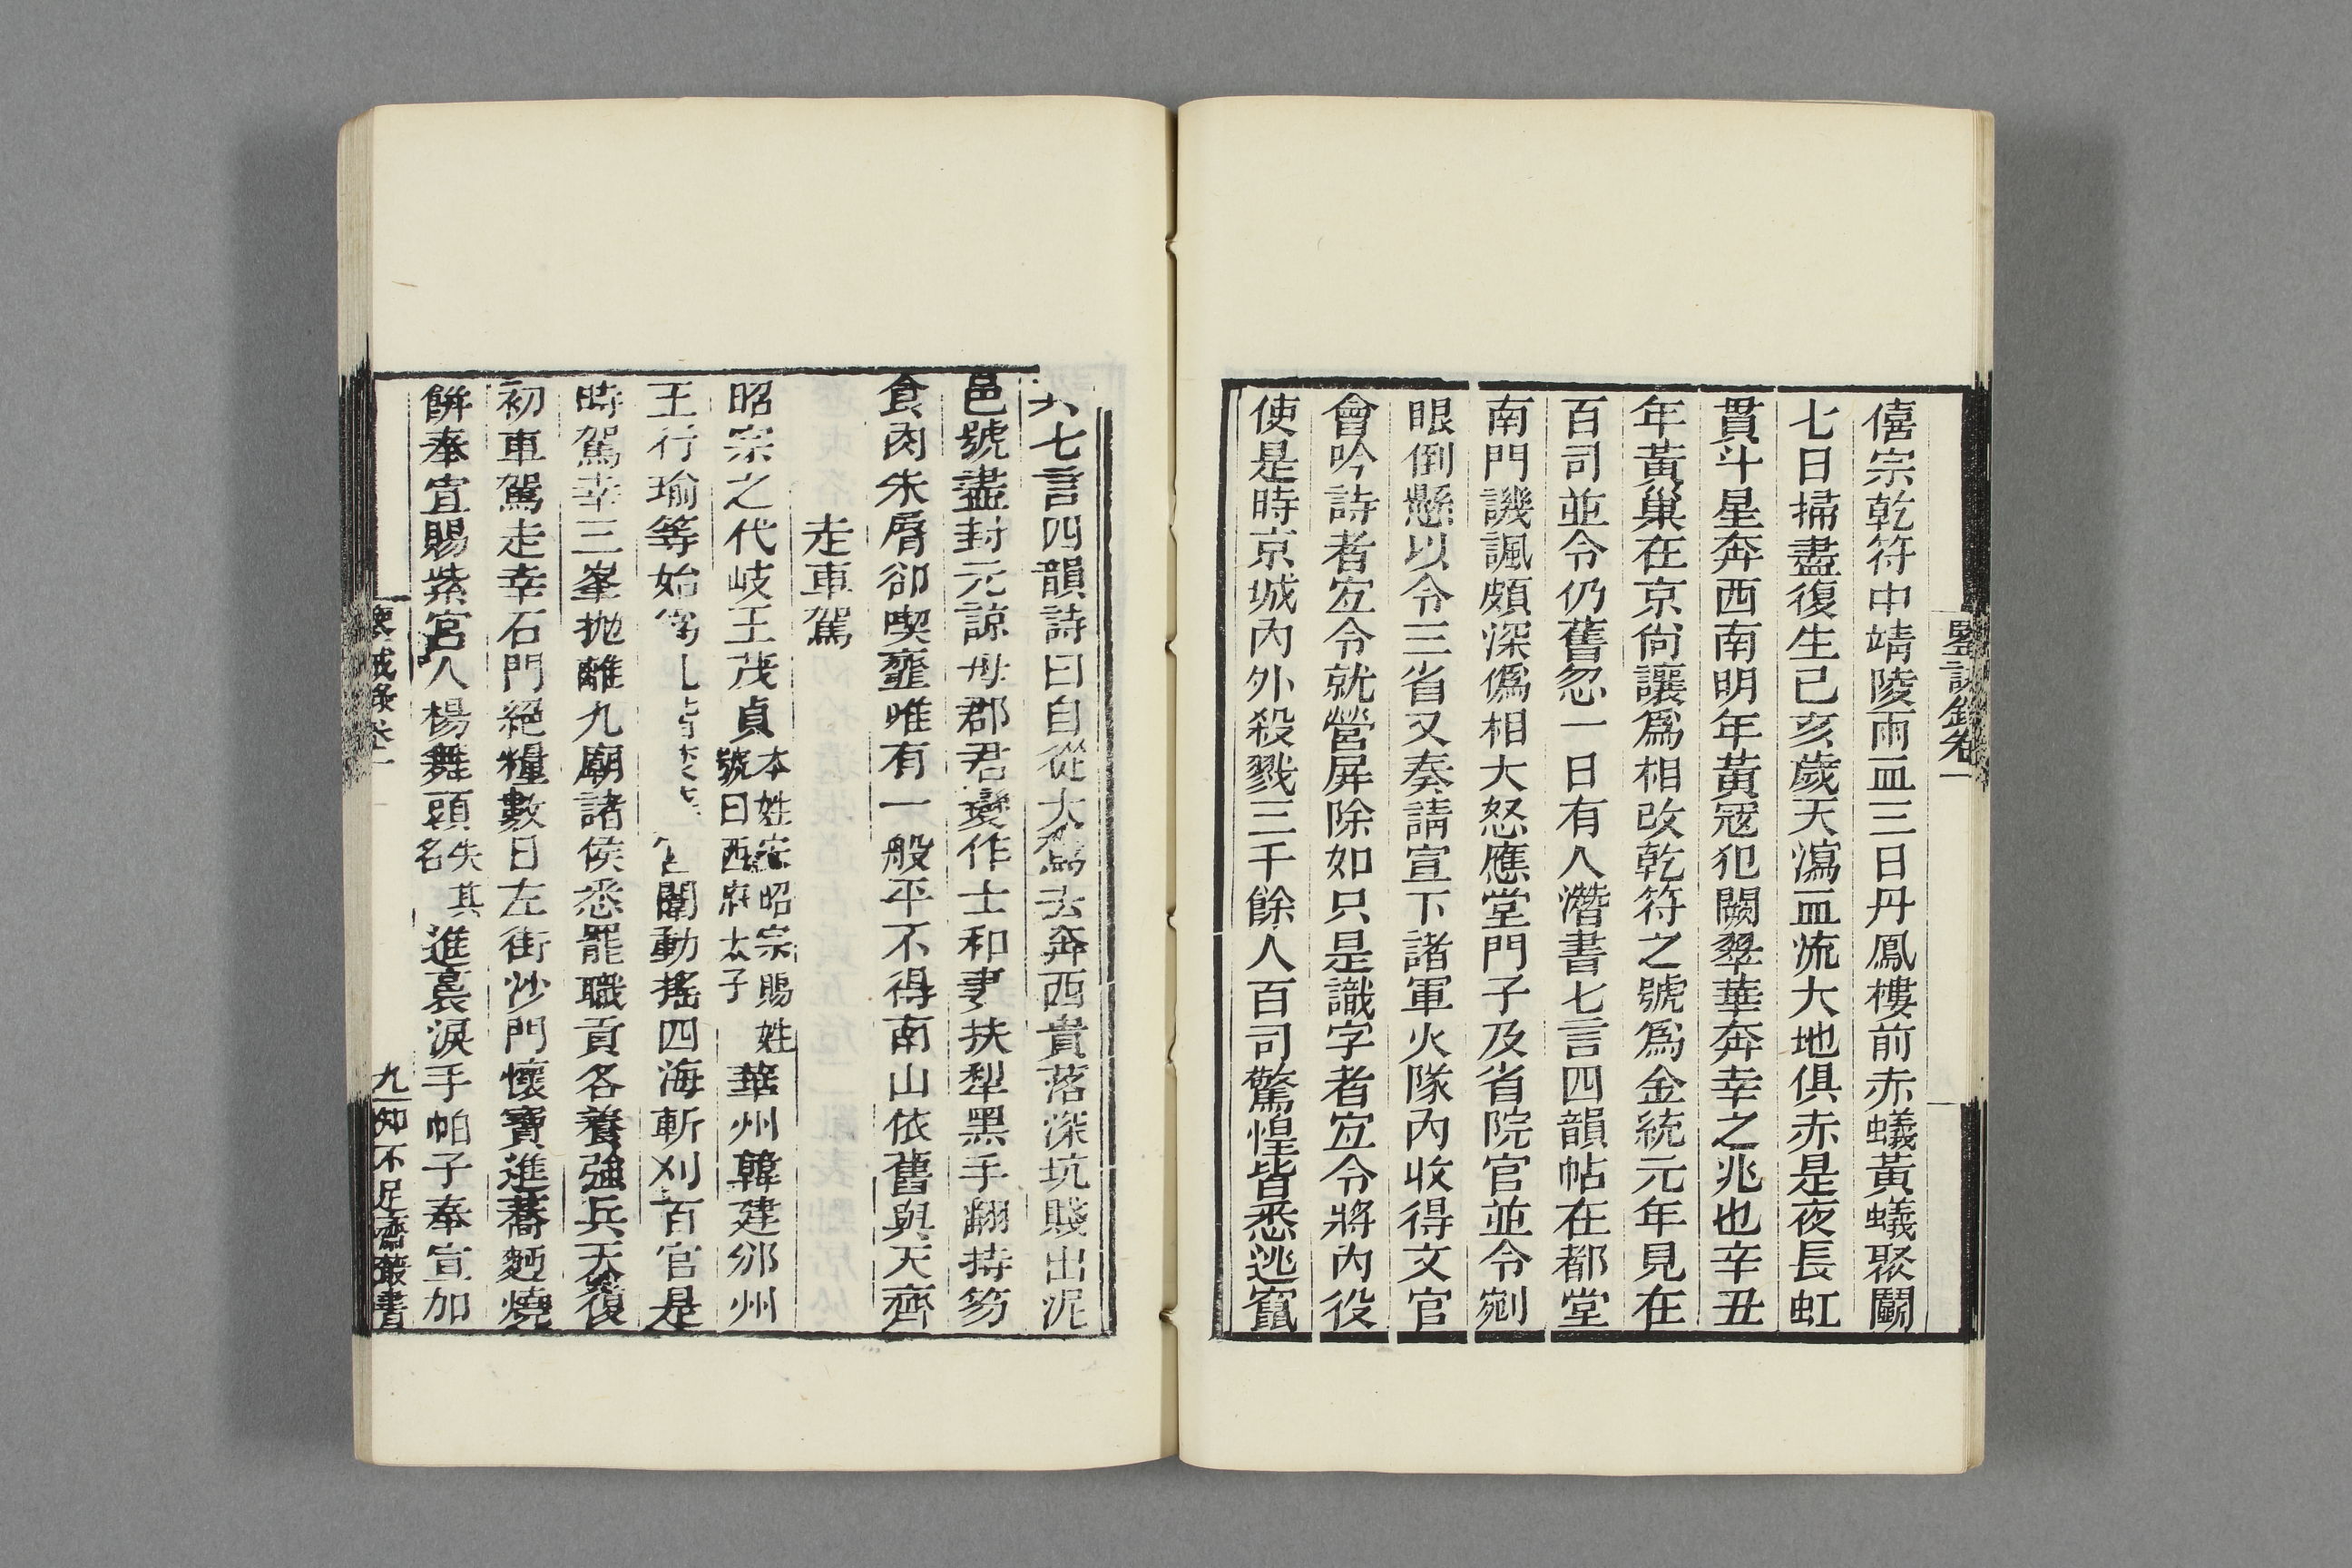 鑒誡錄卷一
僖宗乾符中靖陵雨血三日丹鳳樓前赤蟻黃蟻聚鬬
七日掃盡復生己亥歲天瀉血流大地俱赤是夜長虹
貫斗星奔西南明年黃寇犯闕翠華奔幸之兆也辛丑
年黃巢在京尙讓爲相改乾符之號爲金統元年見在
百司並令仍舊忽一日有人潛書七言四韻帖在都堂
南門譏諷頗深僞相大怒應堂門子及省院官並令剜
眼倒懸以令三省又奏請宣下諸軍火隊內收得文官
會吟詩者宜令就營屏除如只是識字者宜令將內役
使是時京城內外殺戮三千餘人百司驚惶皆悉逃竄
七言四韻詩曰自從大駕去奔西貴落深坑賤出泥
邑號盡封元諒母郡君變作士和妻扶犁黑手翻持笏
食肉朱脣卻喫虀唯有一般平不得南山依舊與天齊
走車駕
昭宗之代岐王茂貞本姓宋昭宗賜姓號曰西府太子華州韓建邠州
王行瑜等始闡動搖四海斬刈百官是
時駕幸三峯抛離九廟諸侯悉罷職貢各養強兵天復
初車駕走幸石門絕糧數日左街沙門懷寶進蕎麪燒
餅奉宣賜紫宮人楊舞頭失其名進裛淚手帕子奉宣加
誡錄卷一
九
知不足齋叢書